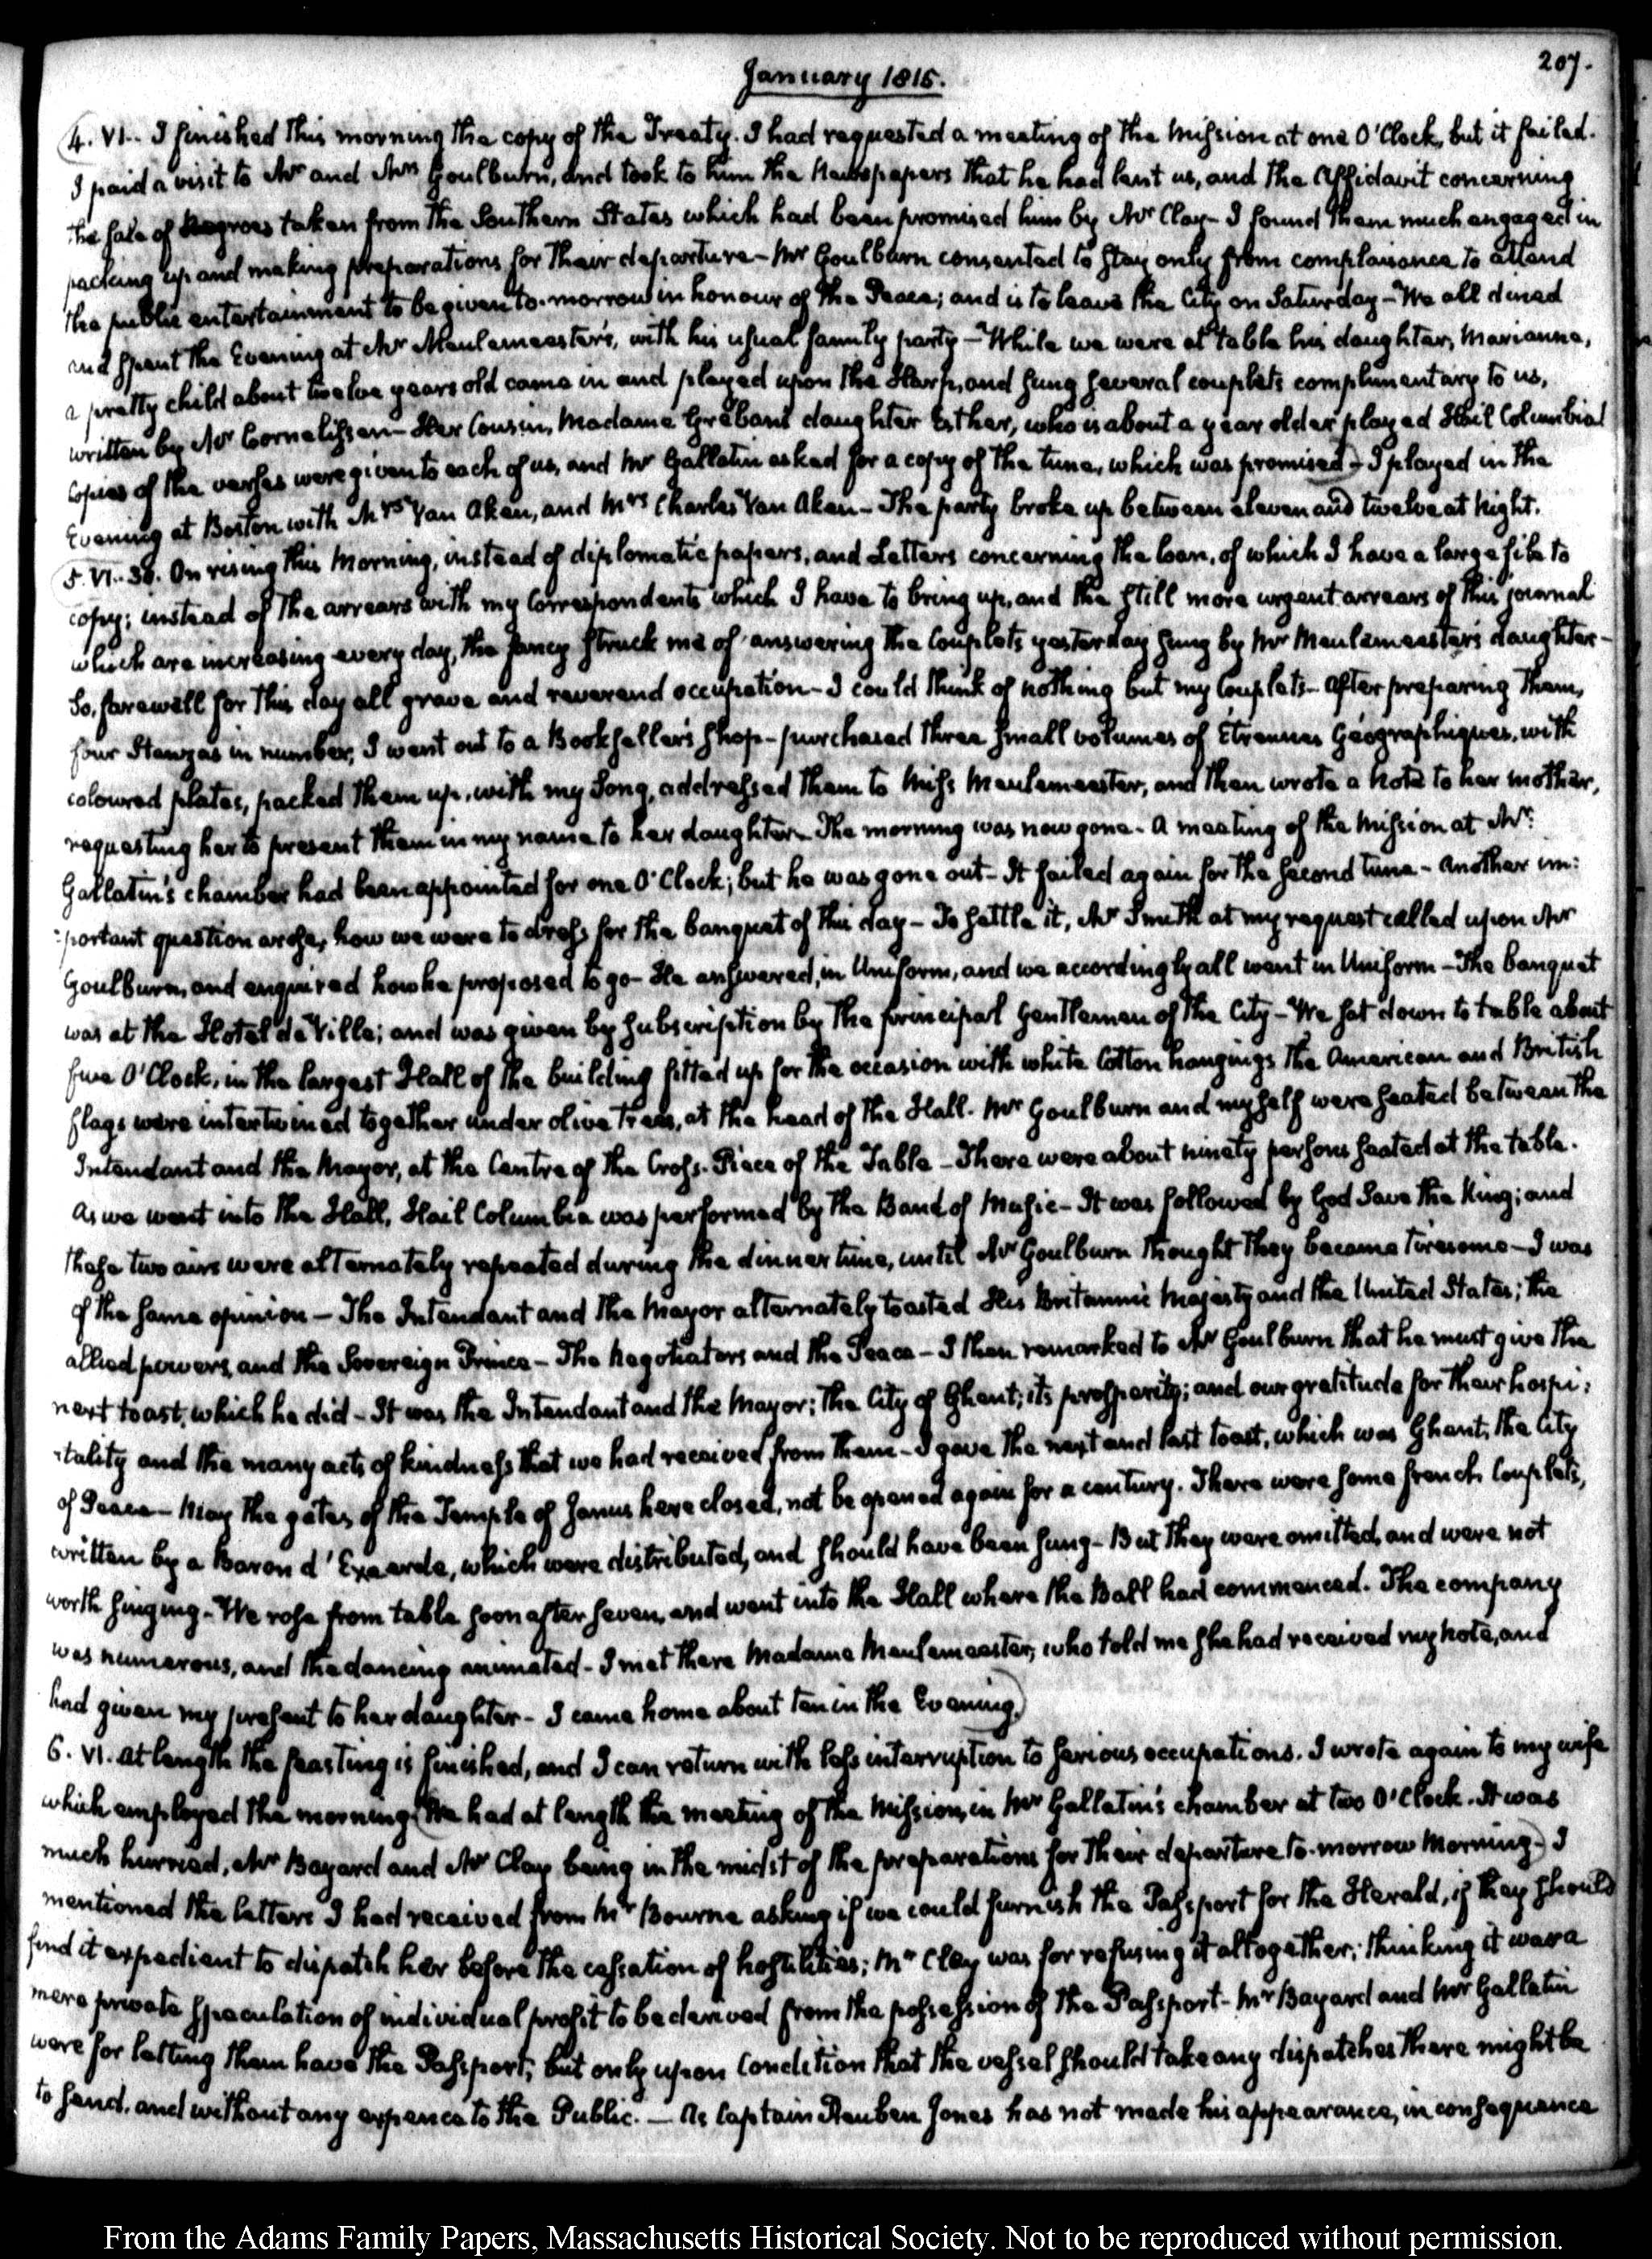 207.
January 1815.
4. VI.. I finished this morning the copy of the Treaty. I had requested a meeting of the Mission at one O'Clock, but it failed.
I paid a visit to Mr and Mrs Goulburn, and took to him the Newspapers that he had lent us, and the Affidavit concerning
the sale of Negroes taken from the Southern States which had been promised him by Mr Clay - I found them much engaged in
packing up and making preparations for their departure - Mr Goulburn consented to stay only from complaisance to attend
the public entertainment to be given to-morrow in honour of the Peace; and is to leave the City on Saturday - We all dined
and spent the Evening at Mr Meulemeester's, with his usual family party - While we were at table his daughter, Marianne,
a pretty child about twelve years old came in and played upon the Harp, and sung several couplets complimentary to us,
written by Mr Cornelissen - Her Cousin, Madame Greban's daughter Esther, who is about a year older played Hail Columbia!
Copies of the verses were given to each of us, and Mr Gallatin asked for a copy of the tune, which was promised - I played in the
Evening at Boston with Mrs Van Aken, and Mrs Charles Van Aken - The party broke up between eleven and twelve at Night.
5. VI.. 30. On rising this Morning, instead of diplomatic papers, and Letters concerning the loan, of which I have a large file to
copy; instead of the arrears with my Correspondents which I have to bring up, and the still more urgent arrears of this journal
which are increasing every day, the fancy struck me of answering the Couplets yesterday sung by Mr Meulemeester's daughter -
So, farewell for this day all grave and reverend occupation - I could think of nothing but my Couplets - After preparing them,
four Stanzas in number, I went out to a Bookseller's shop - purchased three small volumes of Etrennes Géographiques, with
coloured plates, packed them up, with my Song, addressed them to Miss Meulemeester, and then wrote a Note to her mother,
requesting her to present them in my name to her daughter - The morning was now gone - A meeting of the Mission at Mr
Gallatin's chamber had been appointed for one O'Clock; but he was gone out - It failed again for the second time - Another im:
:portant question arose, how we were to dress for the banquet of this day - To settle it, Mr Smith at my request called upon Mr
Goulburn, and enquired how he proposed to go - He answered, in Uniform, and we accordingly all went in Uniform - The banquet
was at the Hotel de Ville; and was given by subscription by the principal Gentlemen of the City - We sat down to table about
five O'Clock, in the largest Hall of the building fitted up for the occasion with white Cotton hangings. The American and British
flags were intertwined together under olive trees, at the head of the Hall. Mr Goulburn and myself were seated between the
Intendant and the Mayor, at the Centre of the Cross-Piece of the Table - There were about ninety persons seated at the table.
As we went into the Hall, Hail Columbia was performed by the Band of Music - It was followed by God Save the King; and
these two airs were alternately repeated during the dinner time, until Mr Goulburn thought they became tiresome - I was
of the same opinion - The Intendant and the Mayor alternately toasted His Britannic Majesty and the United States; the
allied powers, and the Sovereign Prince - The Negotiators and the Peace - I then remarked to Mr Goulburn that he must give the
next toast, which he did - It was the Intendant and the Mayor; the City of Ghent; its prosperity; and our gratitude for their hospi:
:tality and the many acts of kindness that we had received from them - I gave the next and last toast, which was Ghent, the City
of Peace - May the gates of the Temple of Janus here closed, not be opened again for a century. There were some french Couplets,
written by a Baron d'Exaerde, which were distributed, and should have been sung - But they were omitted, and were not
worth singing - We rose from table soon after seven, and went into the Hall where the Ball had commenced. The company
was numerous, and the dancing animated - I met there Madame Meulemeester, who told me she had received my Note, and
had given my present to her daughter - I came home about ten in the Evening.
6. VI. At length the feasting is finished, and I can return with less interruption to serious occupations. I wrote again to my wife
which employed the morning. (We had at length the meeting of the Mission, in Mr Gallatin's chamber at two O'Clock. It was
much hurried, Mr Bayard and Mr Clay being in the midst of the preparations for their departure to-morrow Morning.) I
mentioned the letters I had received from Mr Bourne asking if we could furnish the Passport for the Herald, if they should
find it expedient to dispatch her before the cessation of hostilities; Mr Clay was for refusing it altogether; thinking it was a
mere private speculation of individual profit to be derived from the possession of the Passport - Mr Bayard and Mr Gallatin
were for letting them have the Passport; but only upon Condition that the vessel should take any dispatches there might be
to send, and without any expence to the Public. - As Captain Reuben Jones has not made his appearance, in consequence
From the Adams Family Papers, Massachusetts Historical Society. Not to be reproduced without permission.